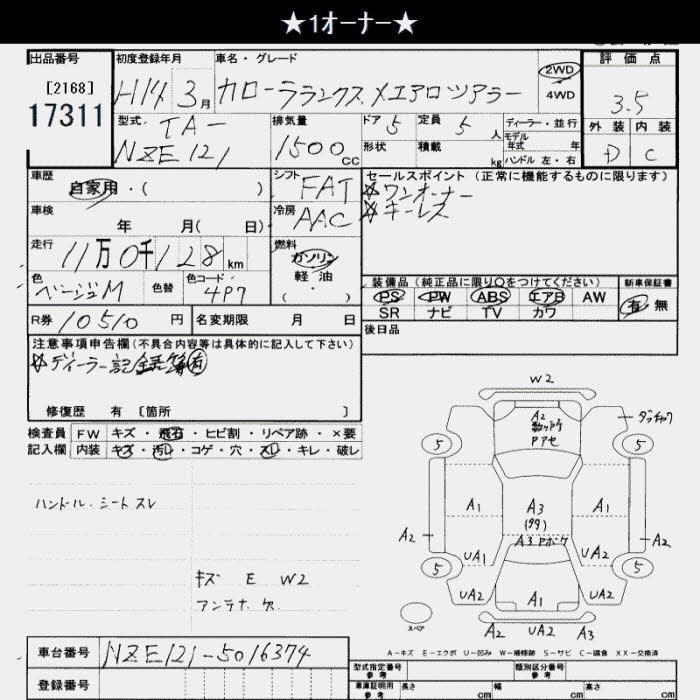 ★1オーナー★
出品番号
[2168]
17311
初度登録年月
H14 3月
車名・グレード
カローラランクス Xエアロツアラー
2WD
4WD
評価点
3.5
外装 内装
D C
型式 TA-
NZE121
排気量
1500cc
ドア 5
定員 5人
形状
積載 kg
ディーラー・並行
モデル年式 年
ハンドル 左・右
車歴
自家用・( )
シフト FAT
セールスポイント(正常に機能するものに限ります)
☆ワンオーナー
☆キーレス
車検
年 月( 日)
冷房 AAC
走行
11万0千128km
燃料
ガソリン
軽・油
・
( )
色
ベージュM
色替
色コード
4P7
装備品(純正品に限り○をつけてください)
PS PW ABS エアB AW
SR ナビ TV カワ
新車保証書
有 無
R券 10510円
名変期限 月 日
後日品
注意事項申告欄(不具合内容等は具体的に記入して下さい)
☆ディーラー記録簿有
修復歴 有 [箇所 ]
検査員
記入欄
FW キズ・飛石・ヒビ割・リペア跡・×要
内装 キズ・汚レ・コゲ・穴・スレ・キレ・破レ
ハンドル・シートスレ
キズ E W2
アンテナ欠
W2
A2
Pアセ
5 5
A1 A3 A1
A2 A3 A2
UA1 UA2
5 5
UA2 A1 UA2
スペア
A2 UA2 A3
A-キズ E-エクボ U-凹み W-補修跡 S-サビ C-腐食 XX-交換済
車台番号 NZE121-5016374
登録番号
型式指定番号
参考
類別区分番号
参考
車庫証明用
参考
長さ cm 幅 cm 高さ cm